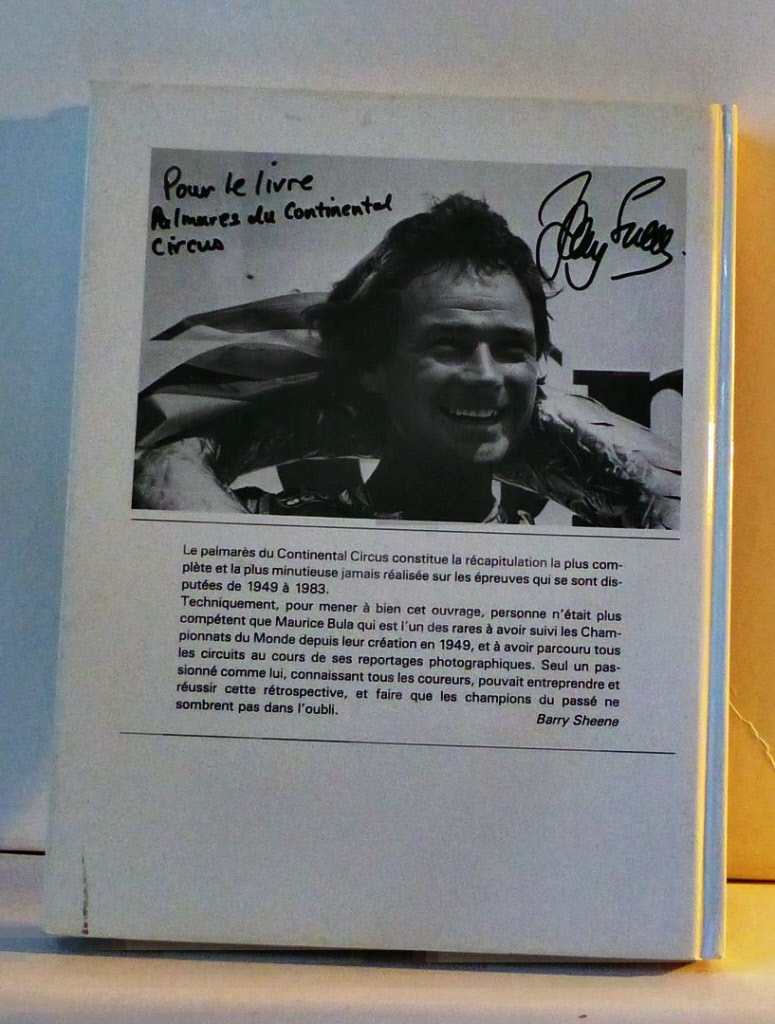 Pour le livre
Palmares du Continental
Circus
Barry Sheene
Le palmarès du Continental Circus constitue la récapitulation la plus com-
plète et la plus minutieuse jamais réalisée sur les épreuves qui se sont dis-
putées de 1949 à 1983.
Techniquement, pour mener à bien cet ouvrage, personne n'était plus
compétent que Maurice Bula qui est l'un des rares à avoir suivi les Cham-
pionnats du Monde depuis leur création en 1949, et à avoir parcouru tous
les circuits au cours de ses reportages photographiques. Seul un pas-
sionné comme lui, connaissant tous les coureurs, pouvait entreprendre et
réussir cette rétrospective, et faire que les champions du passé ne
sombrent pas dans l'oubli.
Barry Sheene